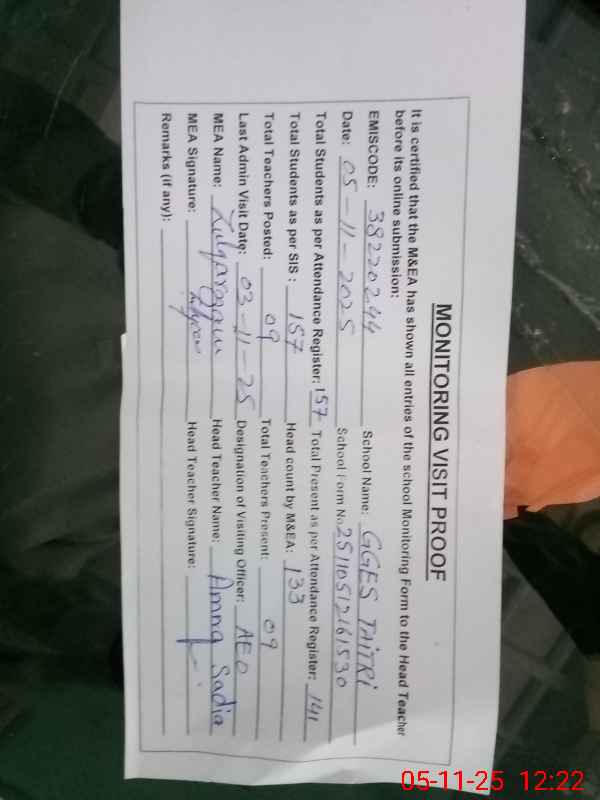 MONITORING VISIT PROOF
It is certified that the M&EA has shown all entries of the school Monitoring Form to the Head Teacher
before its online submission:
EMISCODE: 38220244 School Name: GGES TAITRI
Date: 05-11-2025 School Form No. 25110512161530
Total Students as per Attendance Register: 157 Total Present as per Attendance Register: 141
Total Students as per SIS : 157 Head count by M&EA: 133
Total Teachers Posted: 09 Total Teachers Present: 09
Last Admin Visit Date: 03-11-25 Designation of Visiting Officer: AEO
MEA Name: Head Teacher Name: Amna Sadia
MEA Signature: Head Teacher Signature:
Remarks (if any):
05-11-25 12:22